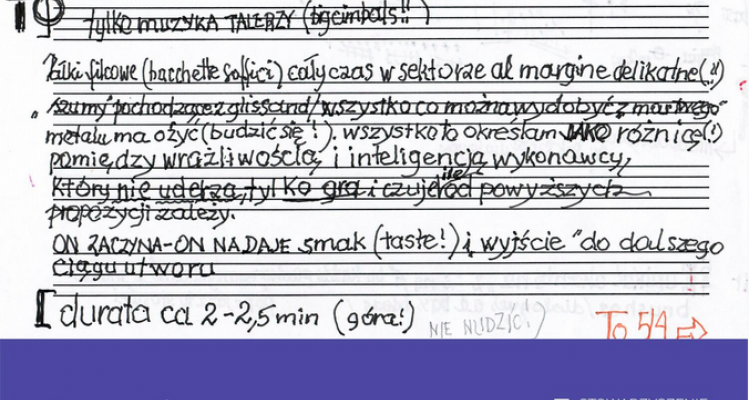 tylko MUZYKA TALERZY (big cimbals!! )
Pałki filcowe (bacchette soffici) cały czas w sektorze al margine delikatne(!)
"szumy" pochodzące z glissand/wszystko co można wydobyć z martwego"
metalu ma ożyć (budzić się!), wszystko to określam JAKO różnicę(!)
pomiędzy wrażliwością i inteligencją wykonawcy,
który nie uderza, tylko gra i czuje
od powyższych
propozycji zależy.
ON ZACZYNA-ON NADAJE smak (taste!) i wyjście "do dalszego
ciągu utworu
[ durata ca 2-2,5 min (góra!)
NIE NUDZIĆ!
To 54 ⇨
STOWARZYSZENIE